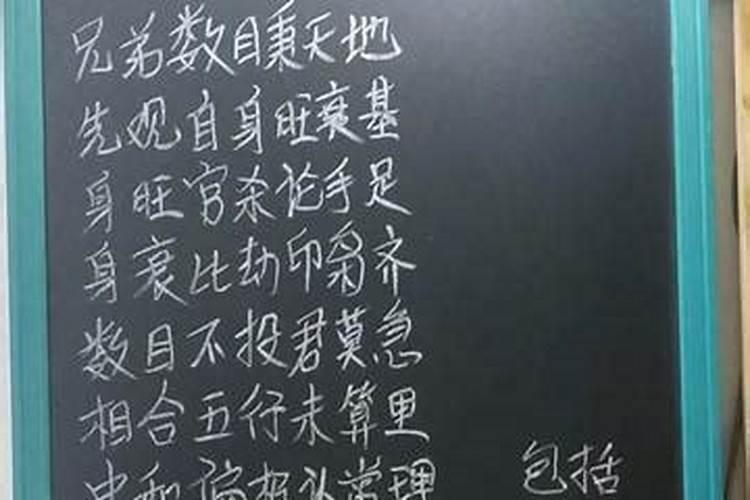 兄弟数目秉天地
先观自身旺衰基
身旺官杀论手足
身衰比劫印枭齐
数目不投君莫急
相合五行未算里
中和偏枯从常理
包括